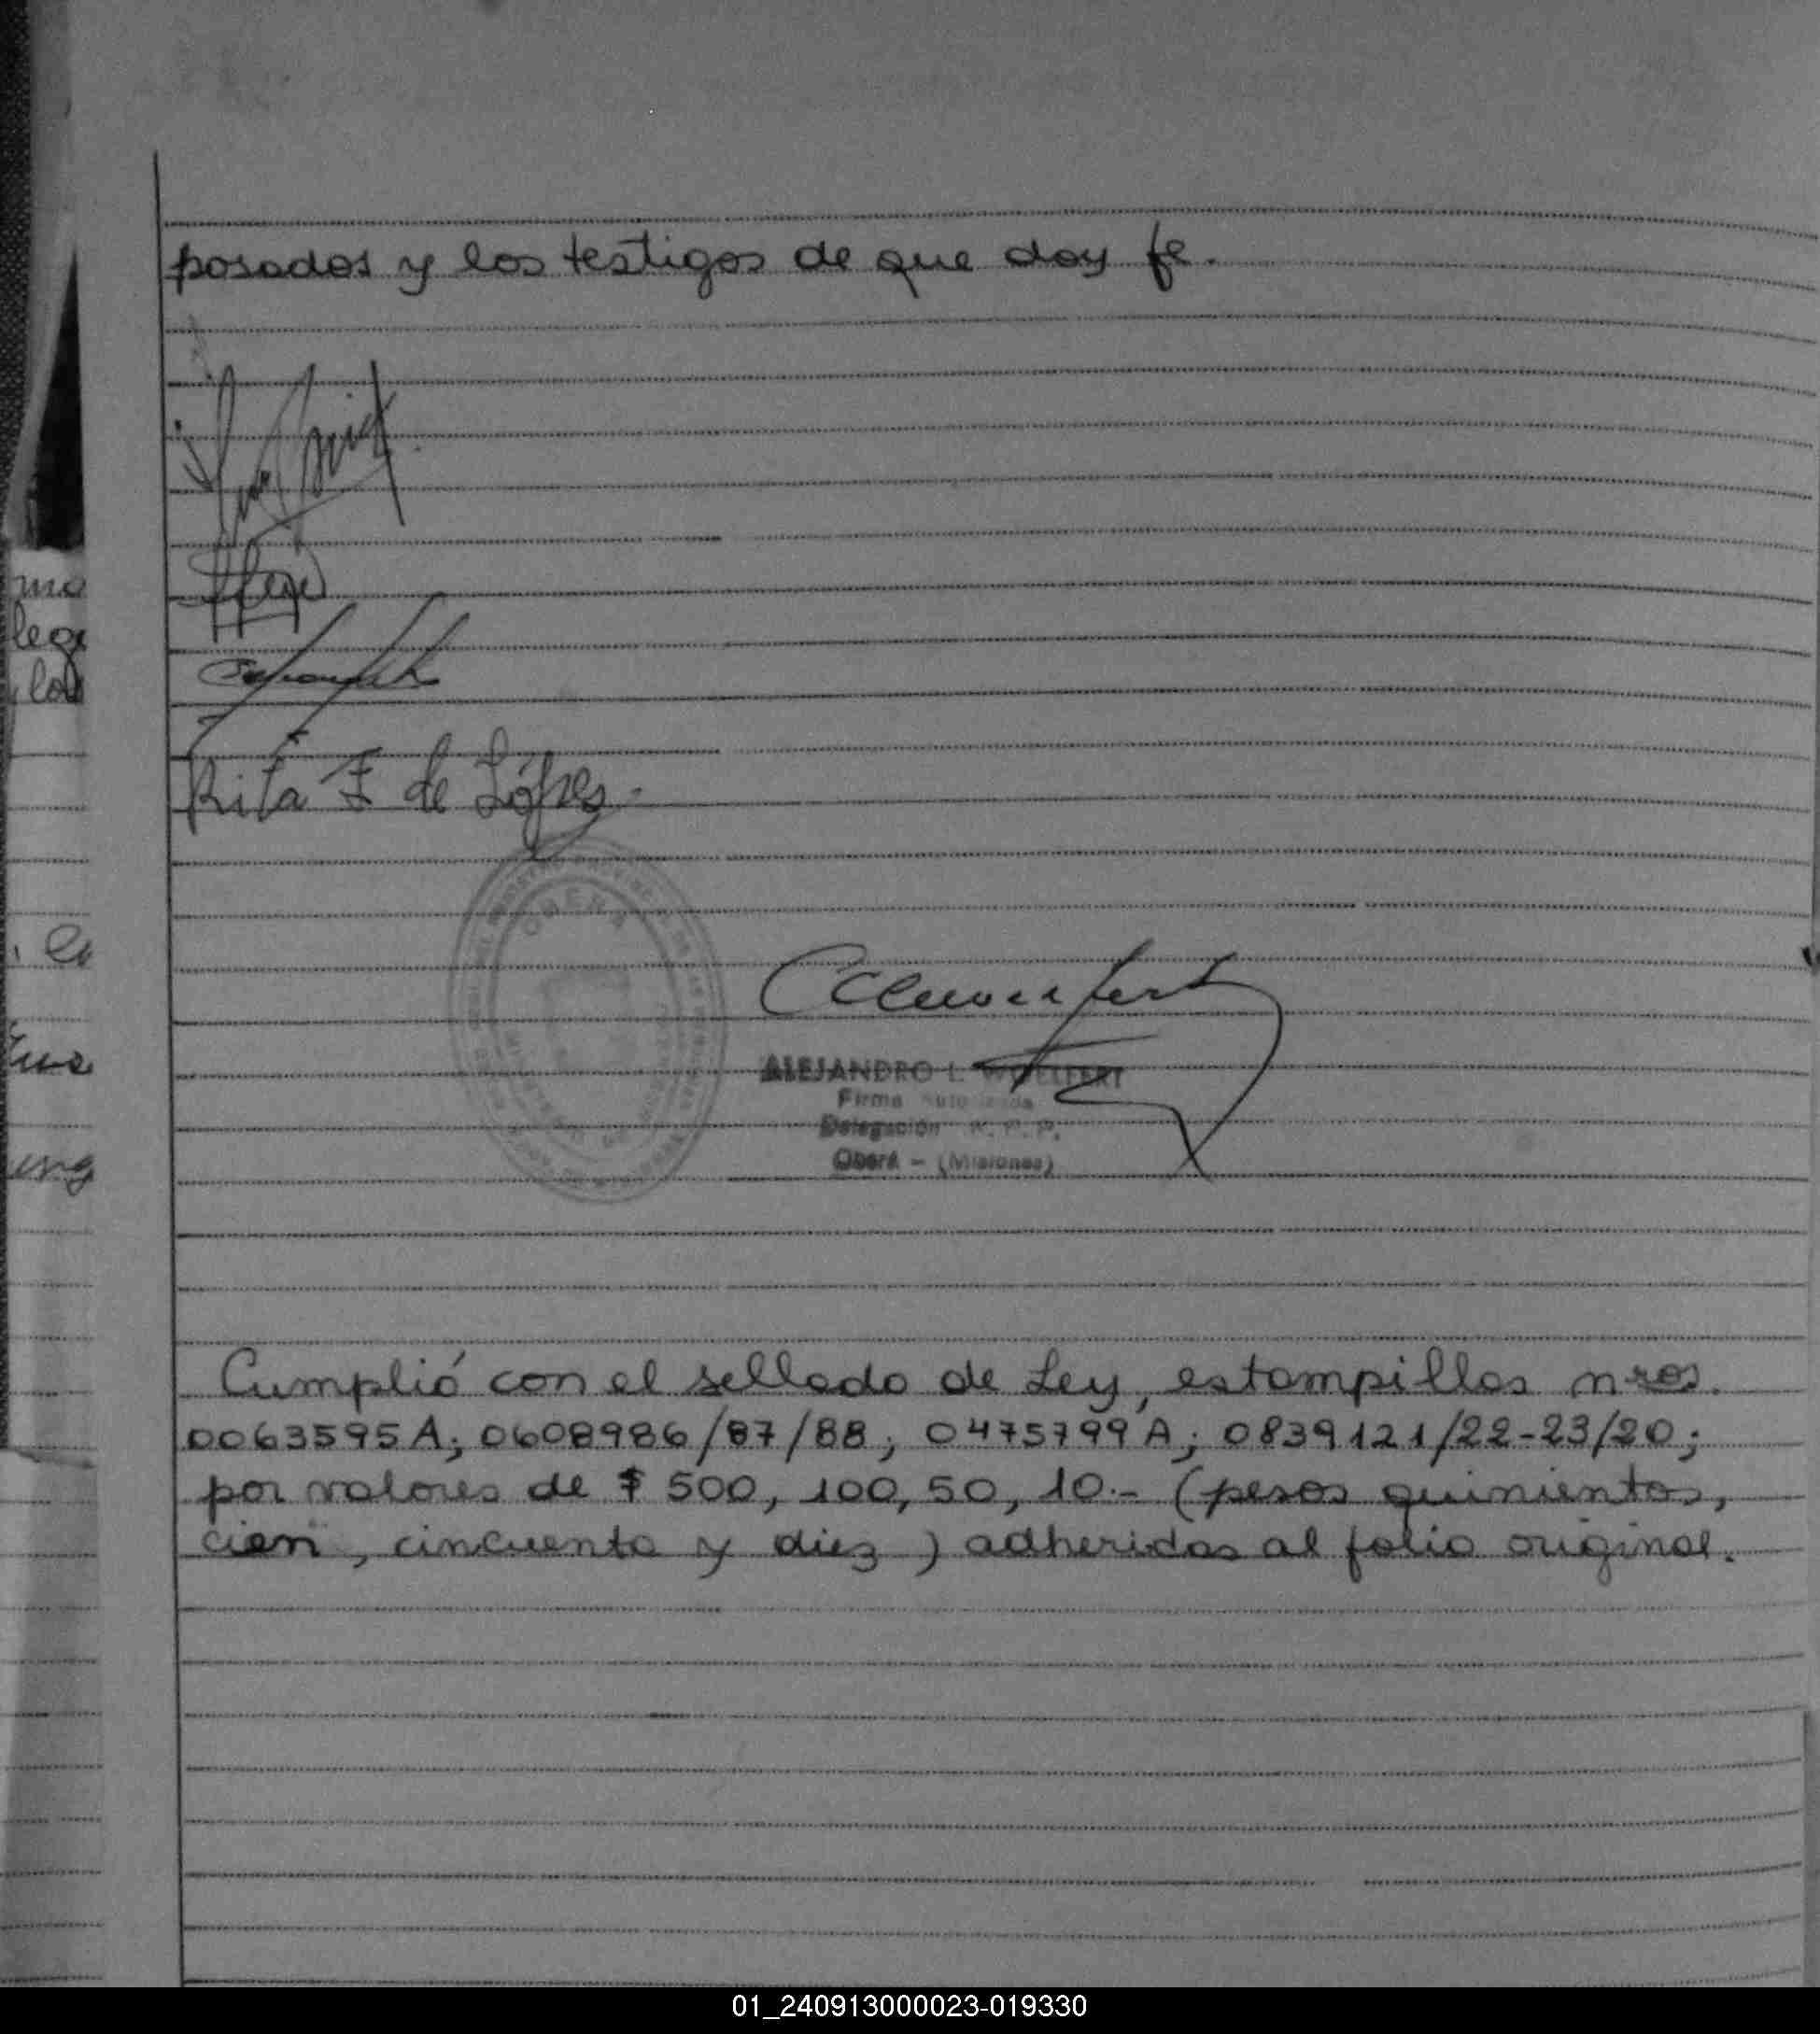 posados y los testigos de que doy fe.
ma
lege
los
Rita F de López.
OBERA
ALEJANDRO L. WOELFERT
Firma Autorizada
Delegación R. P. P.
Oberá - (Misiones)
Cumplió con el sellado de Ley, estampillas nros.
0063595A; 0608986/87/88; 0475799A; 0839121/22-23/20;
por valores de $ 500, 100, 50, 10.- (pesos quinientos,
cien, cincuenta y diez) adheridas al folio original.
01_240913000023-019330